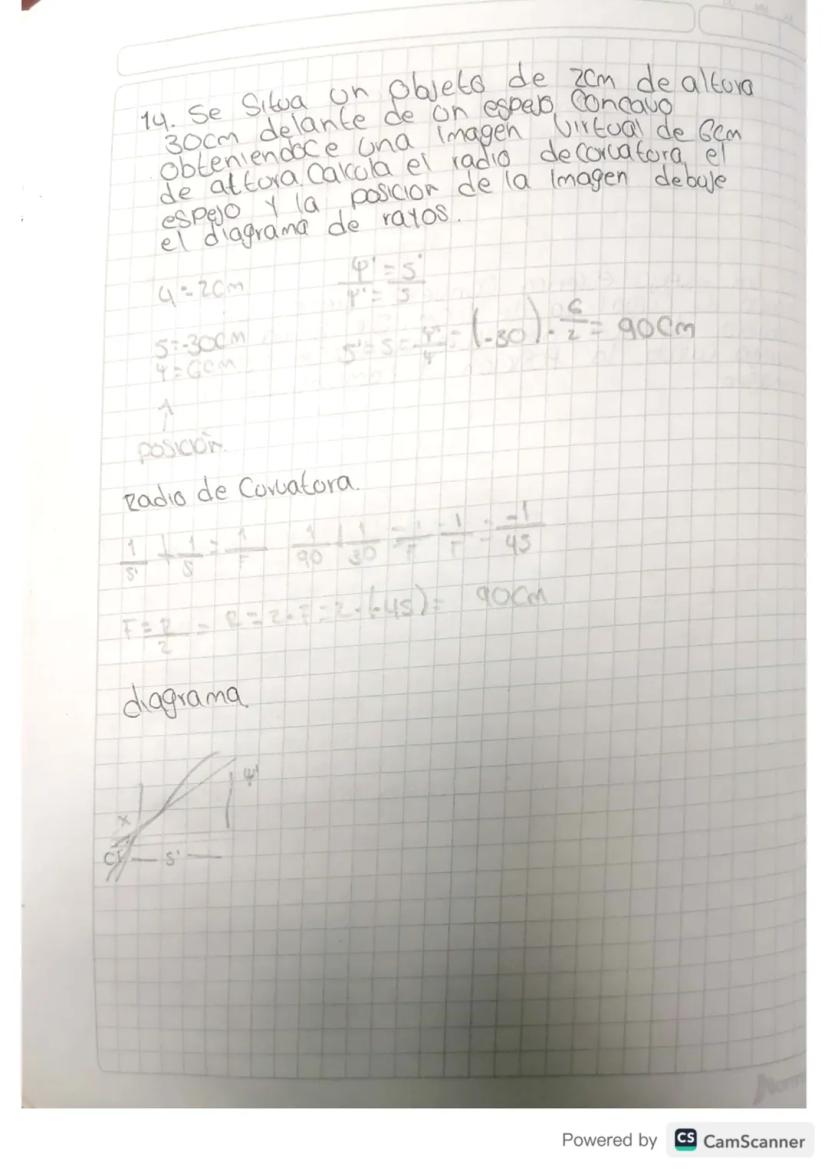 14. Se Situa un Objeto de 2cm de altura
30cm delante de un espejo Concavo
Obteniendoce una Imagen Virtual de 6cm
de altura. Calcula el radio de corvatora, el
espejo Y la posicion de la Imagen debuje
el diagrama de rayos.
y=2cm
y'=s'
y'=s
s=-30cm
s'=s=y'/y=(-30)·6/2=90cm
y=6cm
↑
posición
Radio de Corvatora.
1/s'+1/s=1/F 1/90+1/30=1/F 1/F=-1/45
F=R/2=R=2·F=2·(-45)=90cm
diagrama
y'
x
CF s'
Powered by CS CamScanner